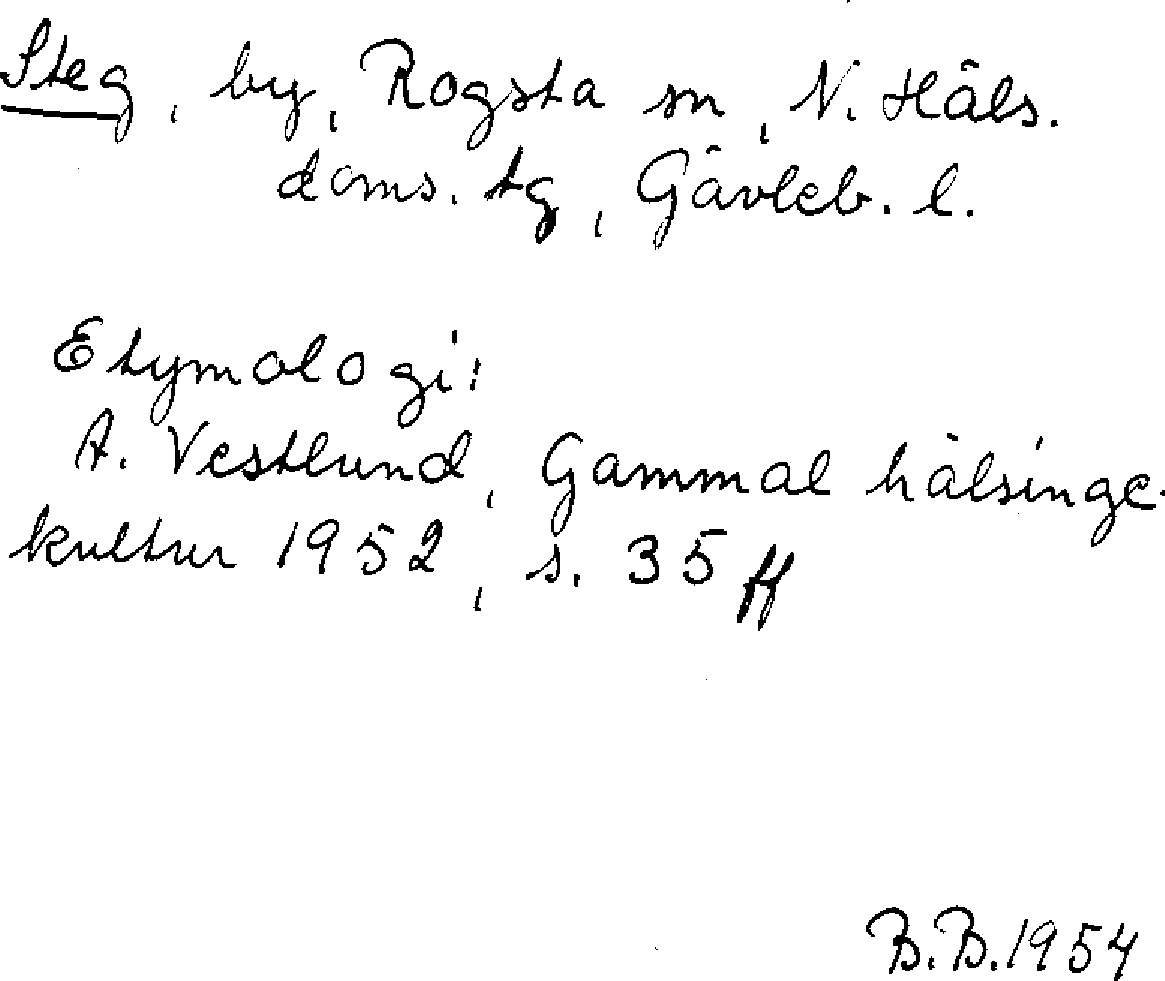 Steg, by, Rogsta sn, N. Häls.
doms. tg, Gävleb. l.
Etymologi:
A. Vestlund, Gammal hälsinge-
kultur 1952, s. 35 ff
B.B. 1954